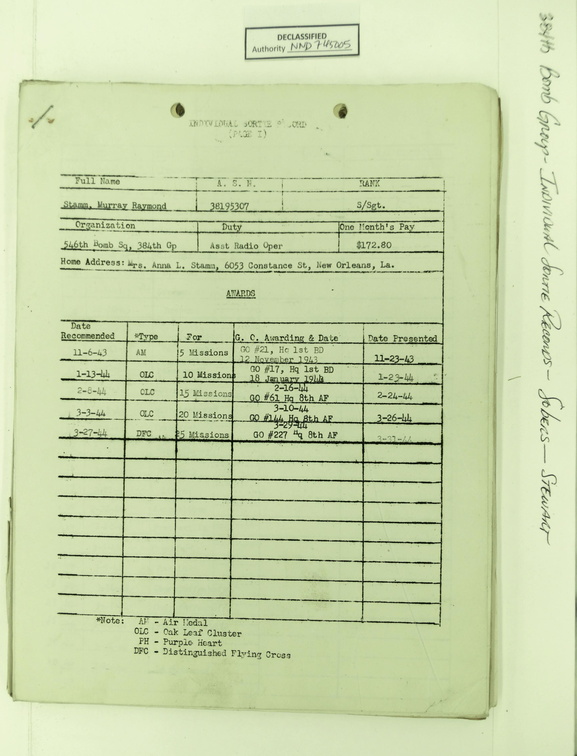 DECLASSIFIED
Authority NND 745005
384th Bomb Group - Individual Sortie Records - Sobers — Stewart
INDIVIDUAL SORTIE RECORD
(PAGE I)
Full Name A. S. N. RANK
Stamm, Murray Raymond 38195307 S/Sgt.
Organization Duty One Month's Pay
546th Bomb Sq, 384th Gp Asst Radio Oper $172.80
Home Address: Mrs. Anna L. Stamm, 6053 Constance St, New Orleans, La.
AWARDS
Date
Recommended *Type For G. O. Awarding & Date Date Presented
11-6-43 AM 5 Missions GO #21, Hq 1st BD
12 November 1943 11-23-43
1-13-44 OLC 10 Missions GO #17, Hq 1st BD
18 January 1944 1-23-44
2-8-44 OLC 15 Missions 2-16-44
GO #61 Hq 8th AF 2-24-44
3-3-44 OLC 20 Missions 3-10-44
GO #144 Hq 8th AF 3-26-44
3-27-44 DFC 25 Missions 3-29-44
GO #227 Hq 8th AF
*Note: AM - Air Medal
OLC - Oak Leaf Cluster
PH - Purple Heart
DFC - Distinguished Flying Cross